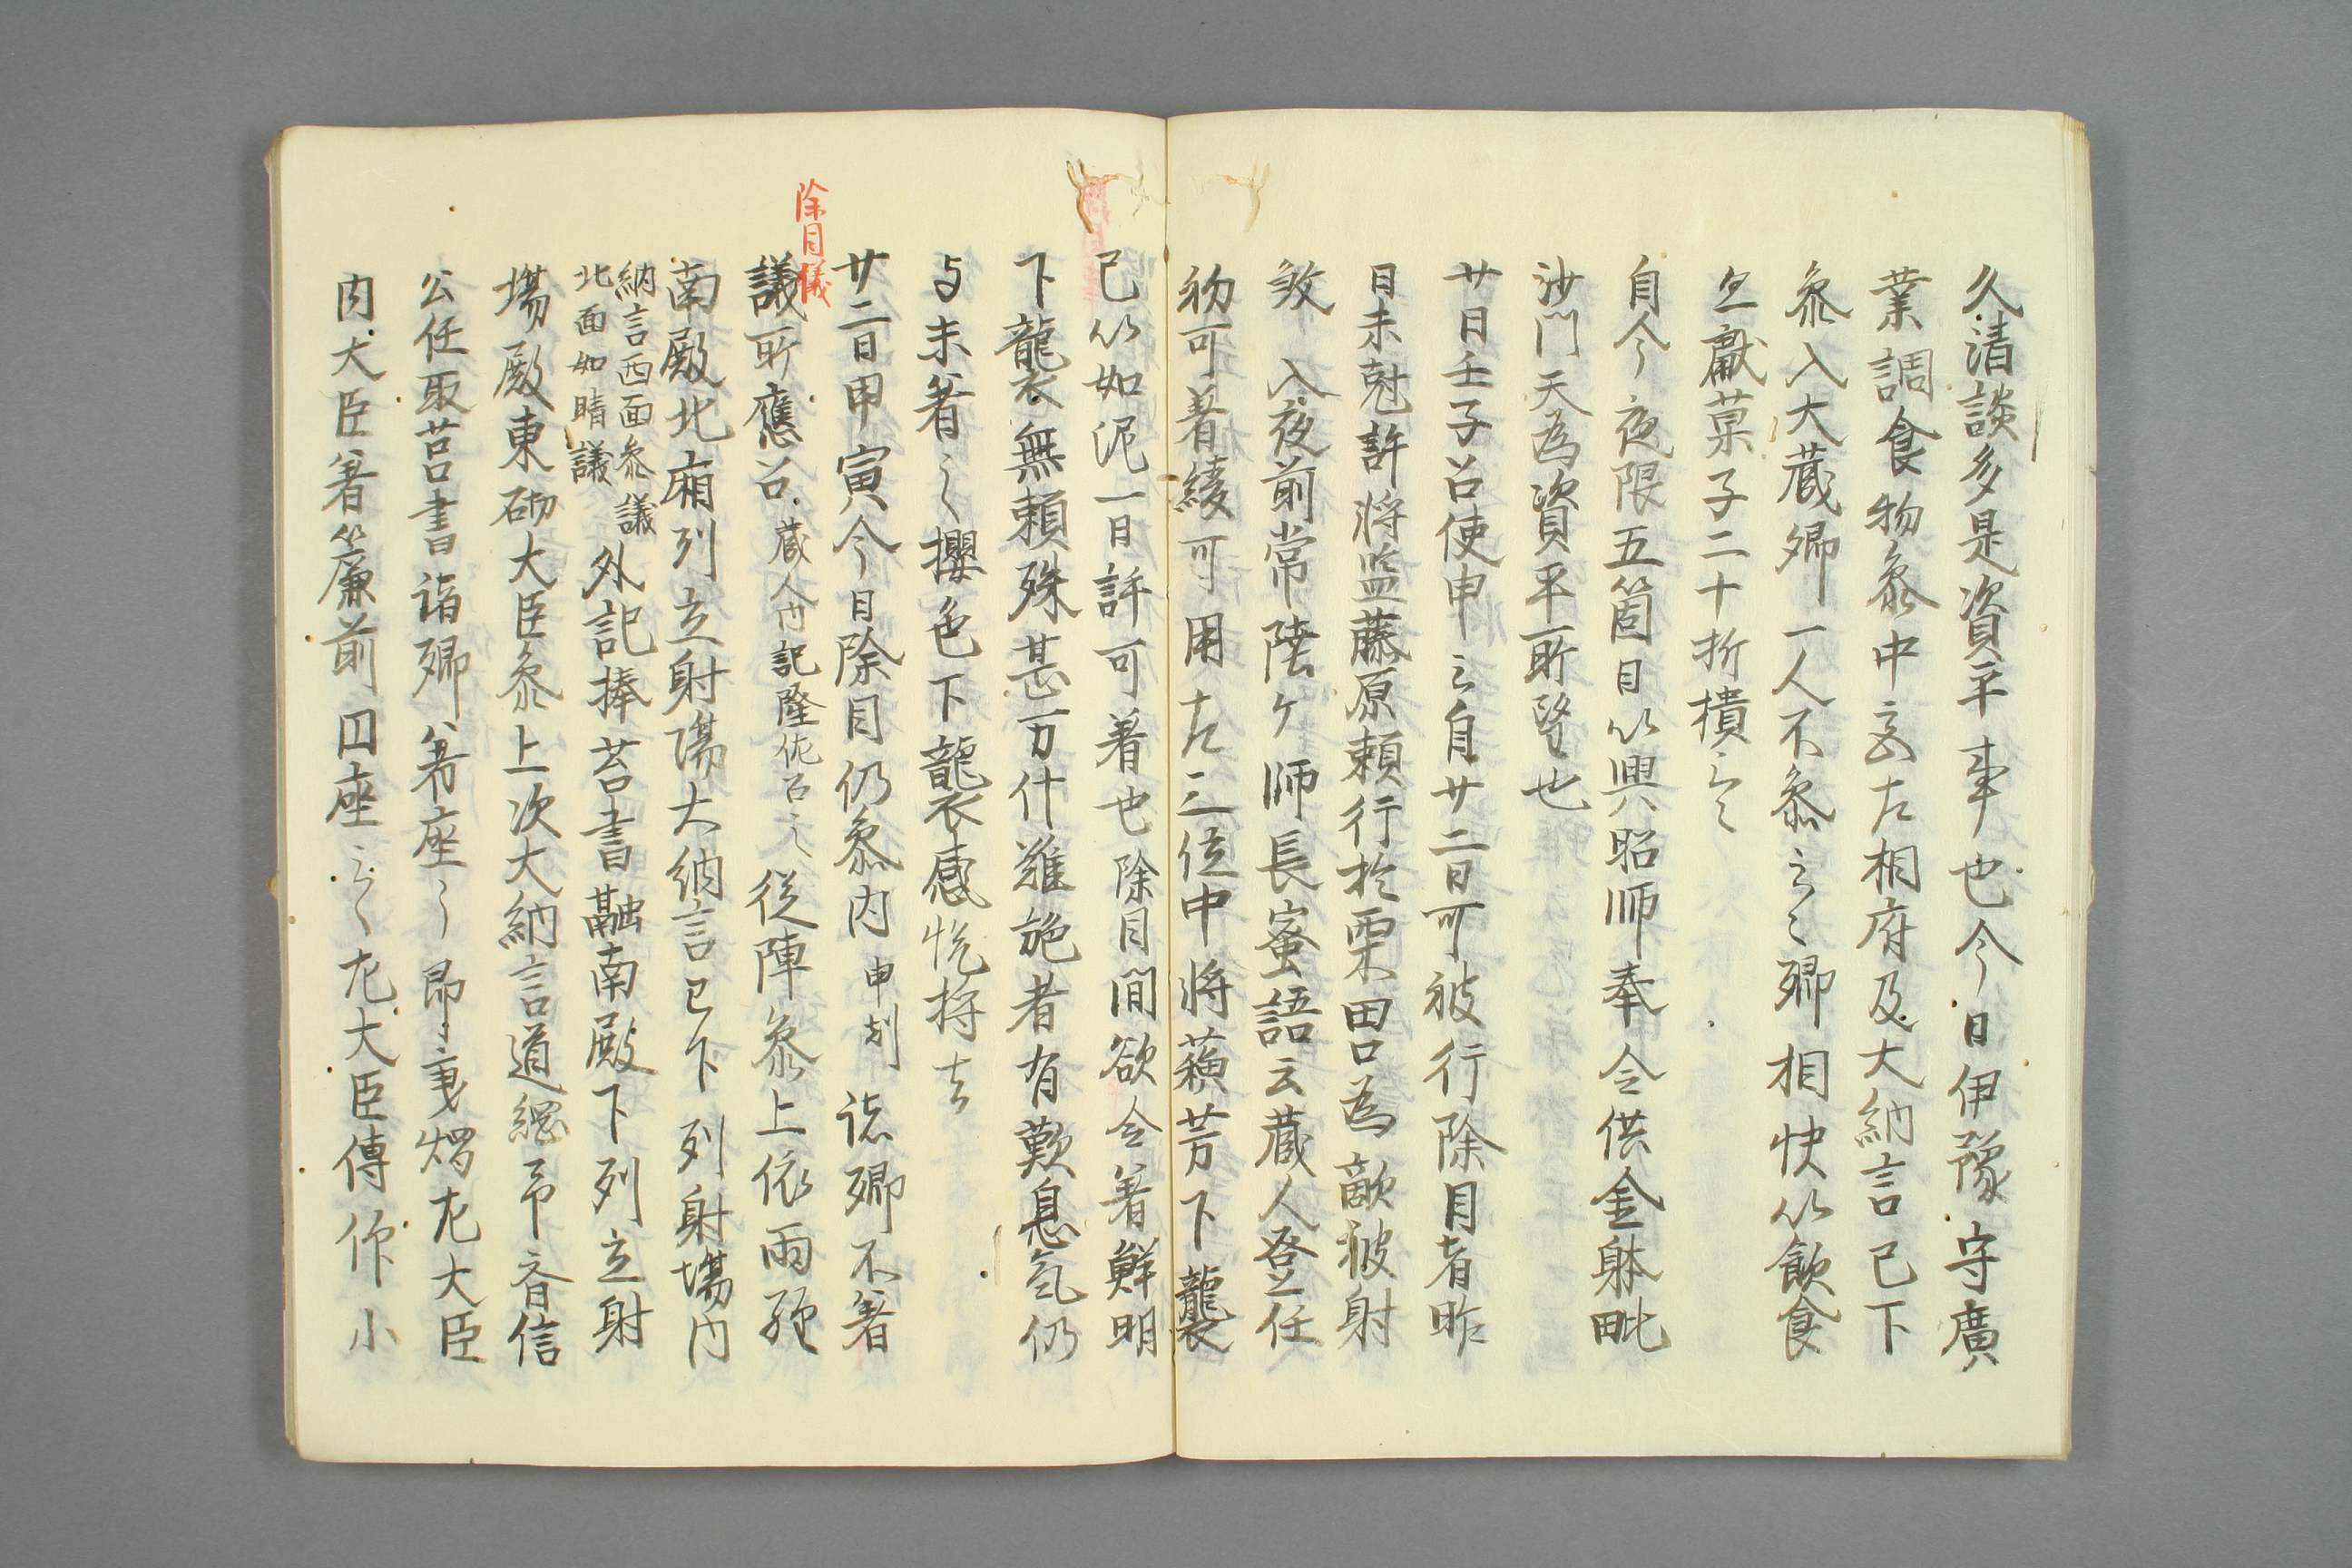 久清談多是資平事也今日伊豫守廣
業調食物参中宮左相府及大納言已下
参入大蔵卿一人不参云々卿相快以飲食
且献菓子二十折樻云々
自今夜限五箇日以興昭師奉令供金躰毗
沙門天為資平所望也
廿日壬子召使申云自廿二日可被行除目者昨
日未剋許将監藤原頼行於栗田口為敵被射
煞 入夜前常陸介師長蜜語云蔵人登任
初可着綾可用左三位中将蘓芳下襲
已以如泥一日許可着也除目間欲令着鮮明
下襲無頼殊甚万什難施者有歎息気仍
与未着之櫻色下襲感悦持去
廿二日甲寅今日除目仍参内 申剋 諸卿不着
除目儀
議所應召 蔵人内記隆佐召之 従陣参上依雨経
南殿北廂列立射場大納言已下列射場内
納言西面参議
北面如晴議
外記捧莒書融南殿下列立射
場殿東砌大臣参上次大納言道綱斉信
公任取莒書諸卿着座了即秉燭左大臣
内大臣着簾前円座云々左大臣傳作小